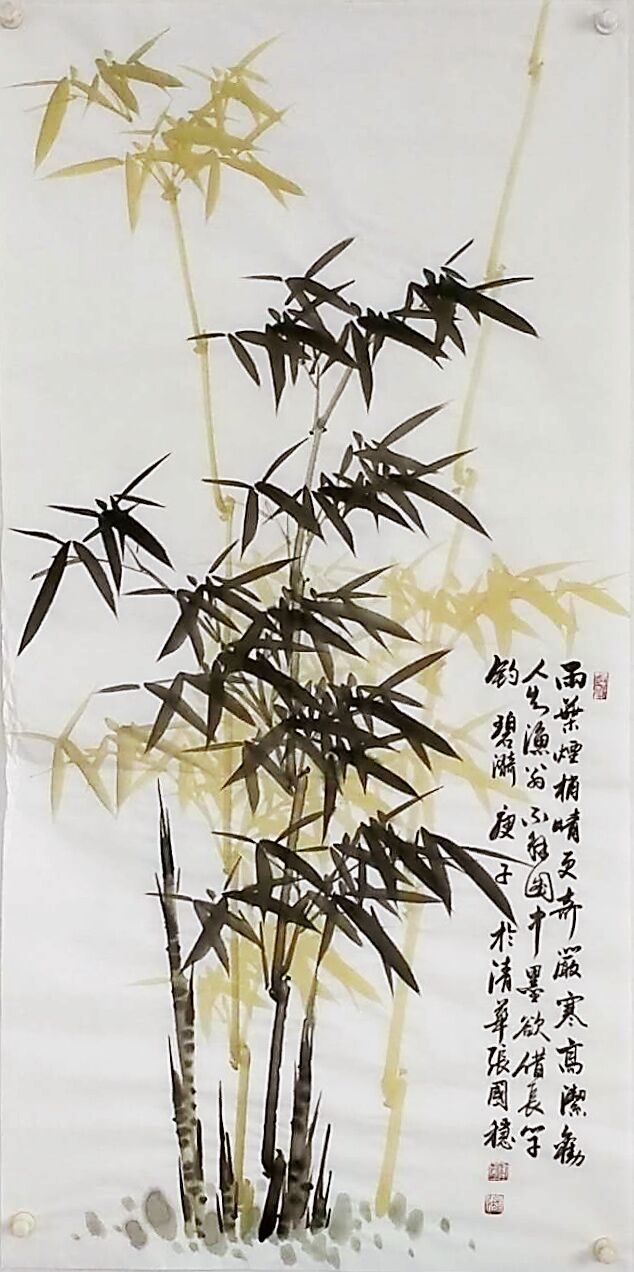 雨葉煙梢晴更奇嚴寒高潔勸
人知漁翁不解圖中墨欲借長竿
釣碧漪 庚子 於清華張國穩